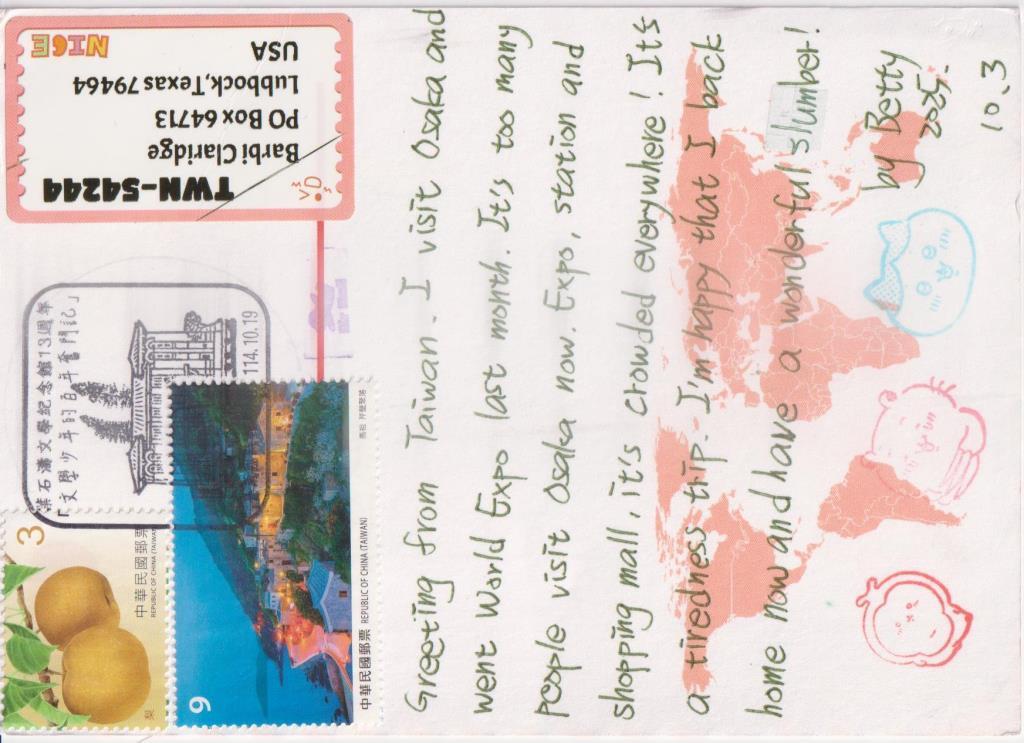 Greeting from Taiwan. I visit Osaka and
went World Expo last month. It's too many
people visit Osaka now. Expo, station and
shopping mall, it's crowded everywhere! It's
a tiredness trip. I'm happy that I back
home now and have a wonderful slumber!
by Betty
2025.
10.3
TWN-54244
Barbi Claridge
PO Box 64713
Lubbock,Texas 79464
USA
NICE
葉石濤文學紀念館13週年
「文學少年的百年奮鬥記」
114.10.19
3
中華民國郵票
REPUBLIC OF CHINA (TAIWAN)
梨
9
中華民國郵票 REPUBLIC OF CHINA (TAIWAN)
馬祖 芹壁聚落